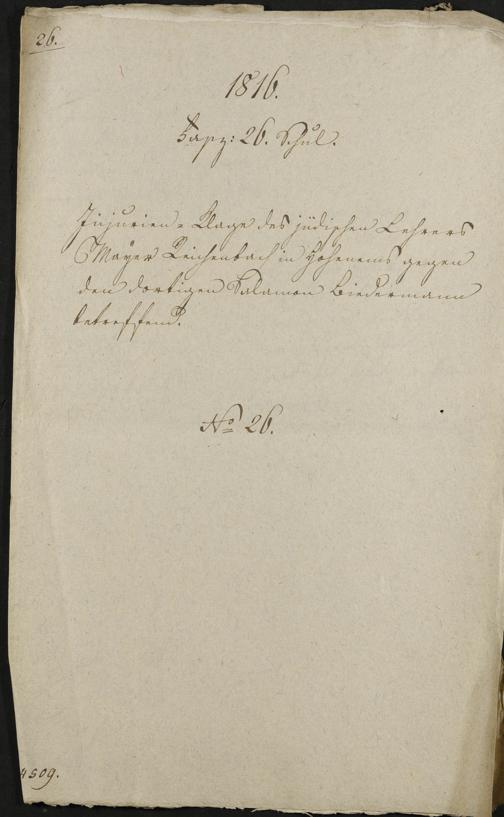 26.
1816.
Fasz: 26. Schul.
Injurien-Klage des jüdischen Lehrers
Mayer Reichenbach in Hohenems gegen
den dortigen Salamon Biedermann
betreffend.
No 26.
4509.